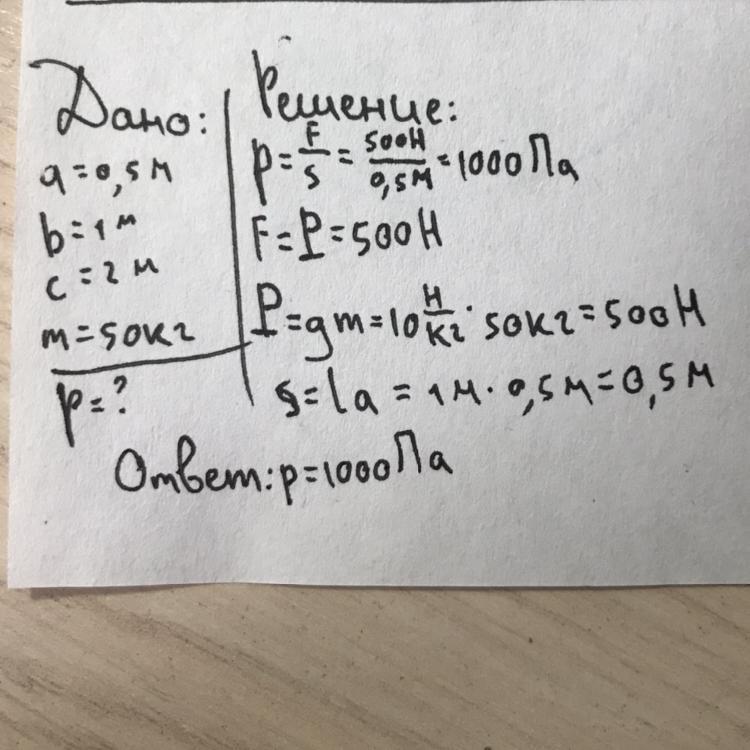 Дано:
a=0,5м
b=1м
c=2м
m=50кг
p=?
Решение:
p=F/S=500Н/0,5м=1000Па
F=P=500Н
P=gm=10Н/кг·50кг=500Н
S=la=1м·0,5м=0,5м
Ответ:p=1000Па